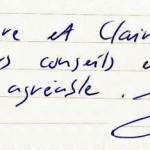 re et Clair
s conseils
agréable.